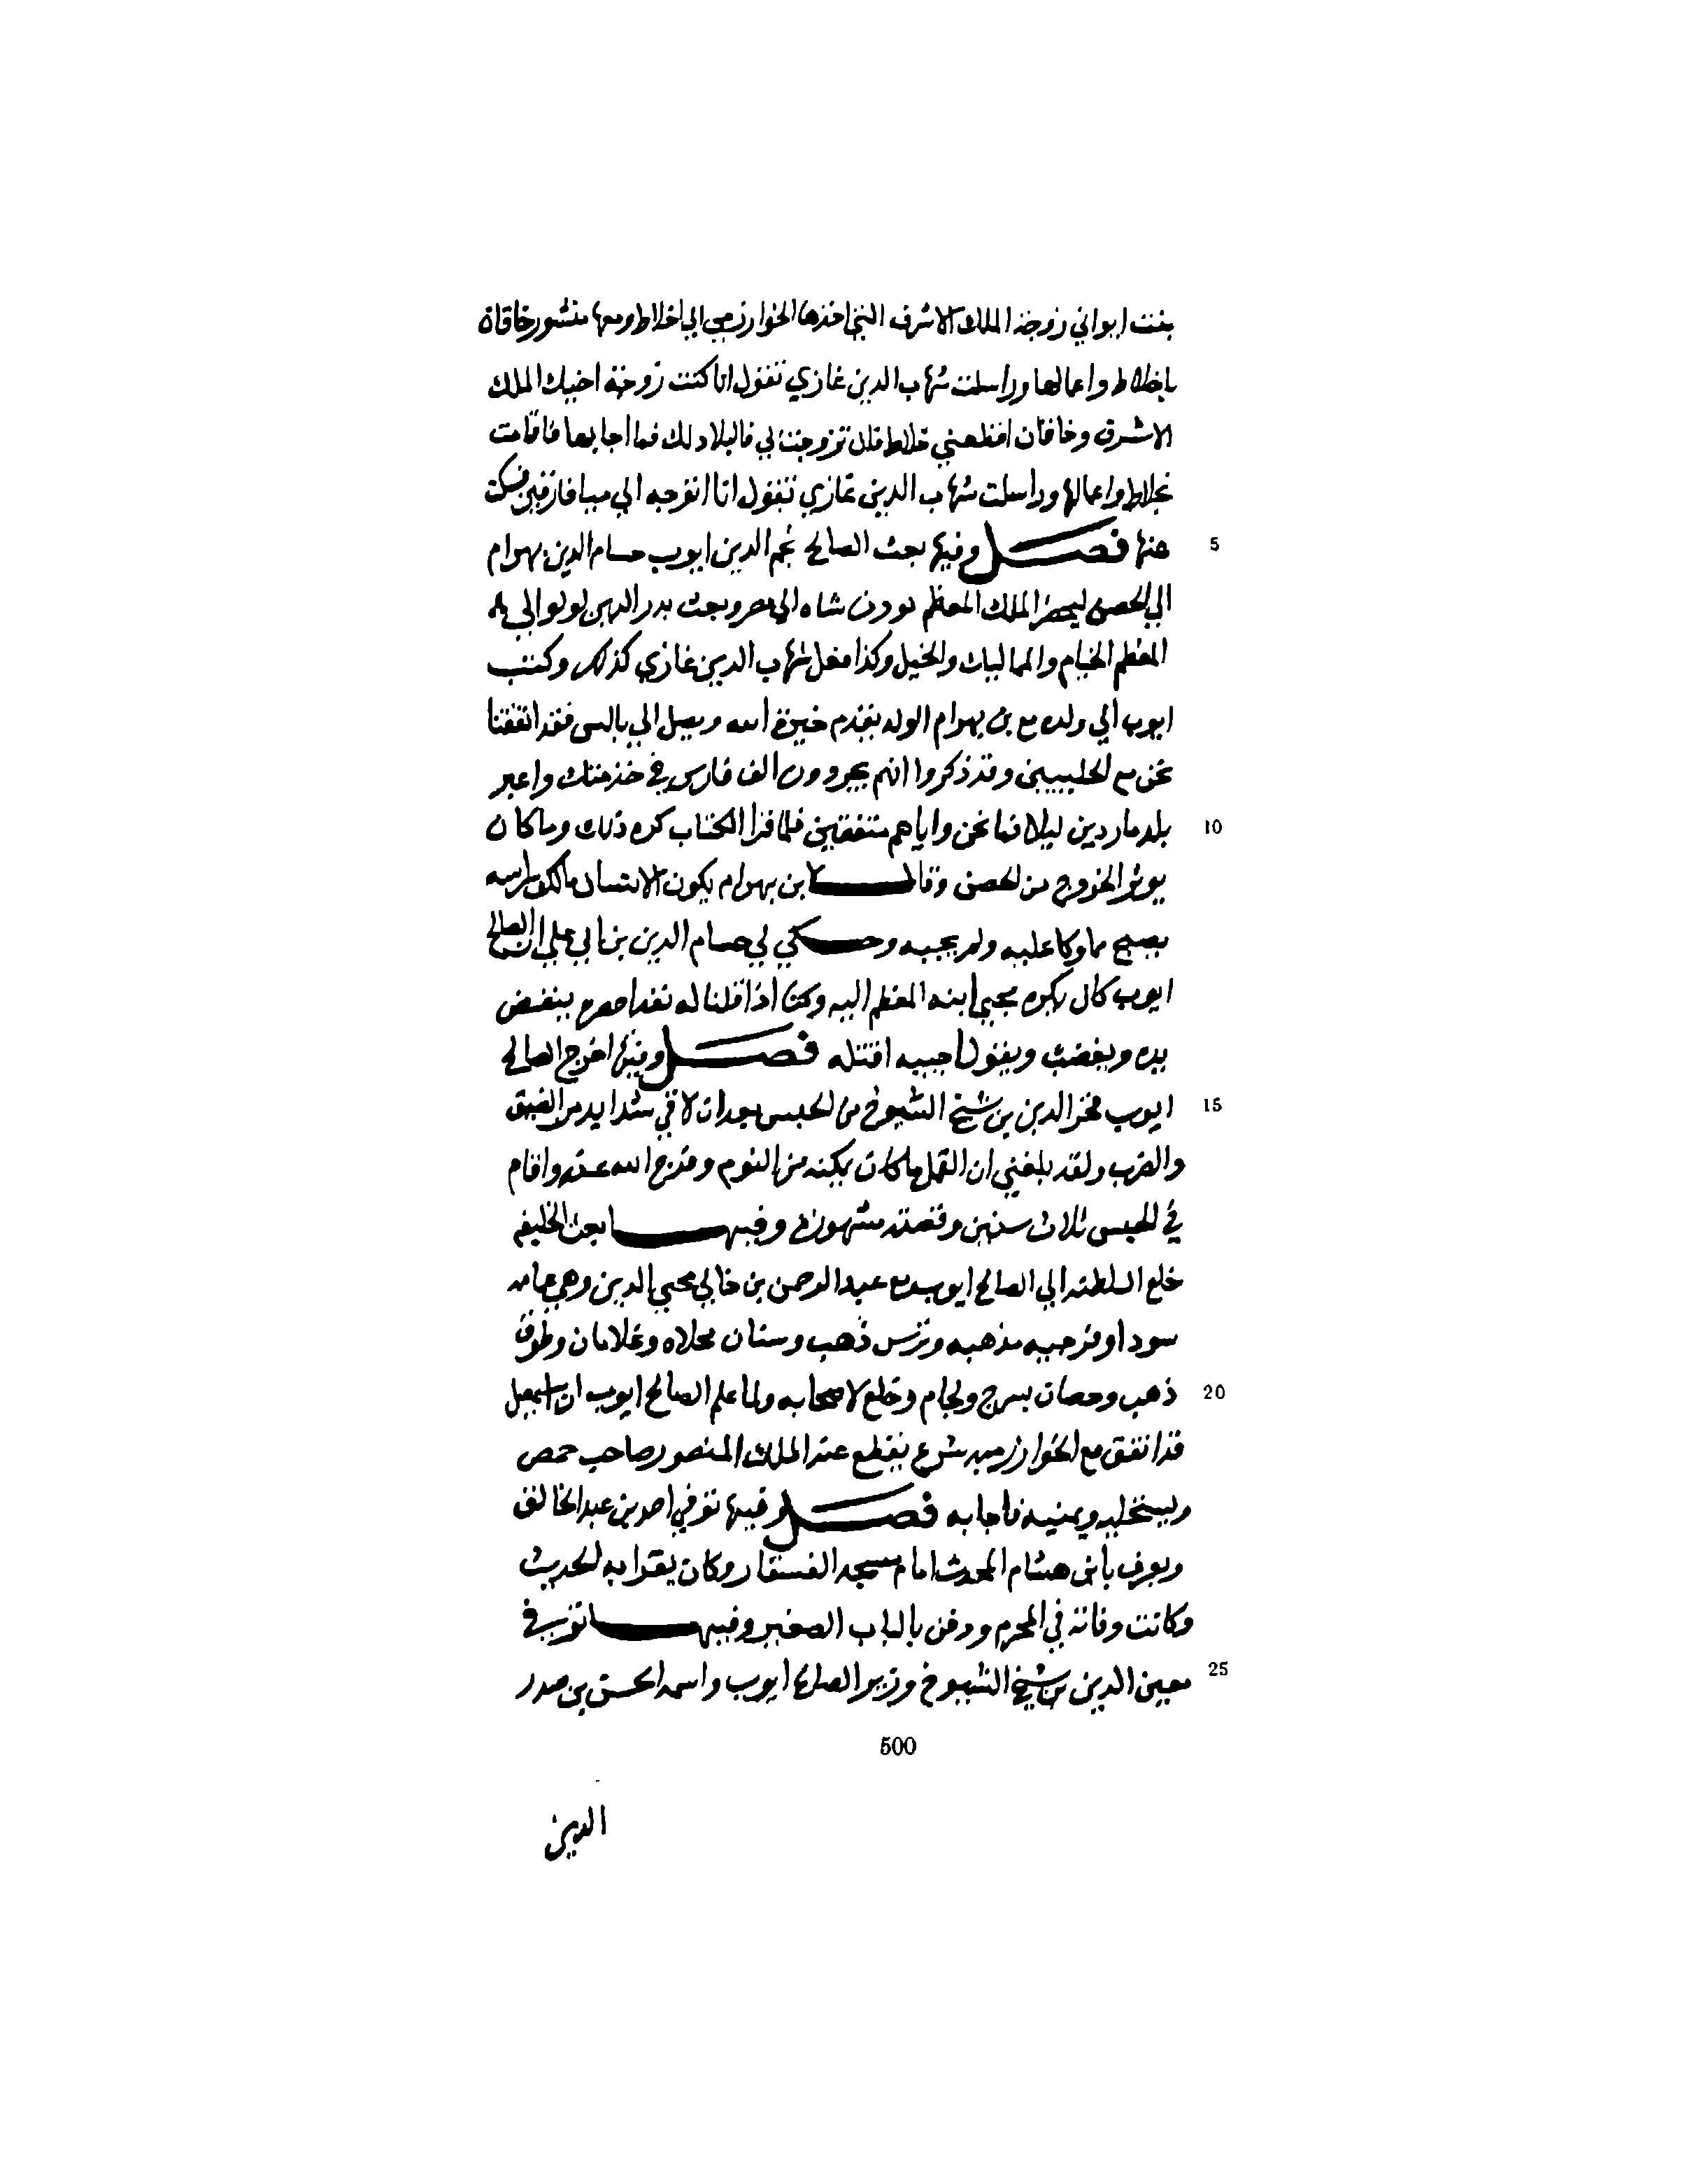 بنت ايواني زوجة الملك الاشرف التي اخذها الخوارزمي الي اخلاط ومعها منشور خاقان
باخلاط واعمالها وراسلت شهاب الدين غازي تقول انا كنت زوجة اخيك الملك
الاشرف وخاقان اقطعني خلاط فان تزوجت بي فالبلاد لك فما اجابها فاقامت
بخلاط واعمالها وراسلت شهاب الدين غازي تقول انا اتوجه الي ميافارقين فسكت
5 عنها فصل وفيها بعث الصالح نجم الدين ايوب حسام الدين بهرام
الي الحصن ليحضر الملك المعظم تورن شاه الي مصر وبعث بدر الدين لولو الي
المعظم الخيام والمماليك والخيل وكذا فعل شهاب الدين غازي كذلك وكتب
ايوب الي ولده مع بن بهرام الولد يقدم خيرة الله ويصل الي بالس فقد اتفقنا
نحن مع الحلبيين وقد ذكروا انهم يجردون الف فارس في خدمتك واعبر
10 بلد ماردين ليلا فما نحن واياهم متفقين فلما قرا الكتاب كره ذلك وما كان
يوثر الخروج من الحصن وقال لابن بهرام يكون الانسان مالك راسه
يصبح مملوكا عليه ولم يجبه وحكي لي حسام الدين بن ابي علي ان الصالح
ايوب كان يكره مجي ابنه المعظم اليه وكنا اذا قلنا له نفذ احضره ينفض
يده ويغضب ويقول اجيبه اقتله فصل وفيها اخرج الصالح
15 ايوب فخر الدين بن شيخ الشيوخ من الحبس بعد ان لاقي شدايد من الضيق
والضرب ولقد بلغني ان القمل ما كان يمكنه من النوم وفرج الله عنه واقام
في الحبس ثلاث سنين وقصته مشهورة وفيها بعث الخليفه
خلع السلطنه الي الصالح ايوب مع عبد الرحمن بن خالي محيي الدين وهي عمامه
سودا وفرجيه مذهبه وترس ذهب وسنان محلاه وغلامان وطوق
20 ذهب وحصان بسرج ولجام وخلع لاصحابه ولما علم الصالح ايوب ان اسمعيل
قد اتفق مع الخوارزميه شرع يقطع عنه الملك المنصور صاحب حمص
ويستحلبه ويمنيه فاجابه فصل وفيها توفي احمد بن عبد الخالق
ويعرف بابن هشام المحدث امام مسجد الفسقار وكان يقرا به الحديث
وكانت وفاته في المحرم ودفن بالباب الصغير وفيها توفي
25 معين الدين بن شيخ الشيوخ وزير الصالح ايوب واسمه الحسن بن صدر
500
الدين